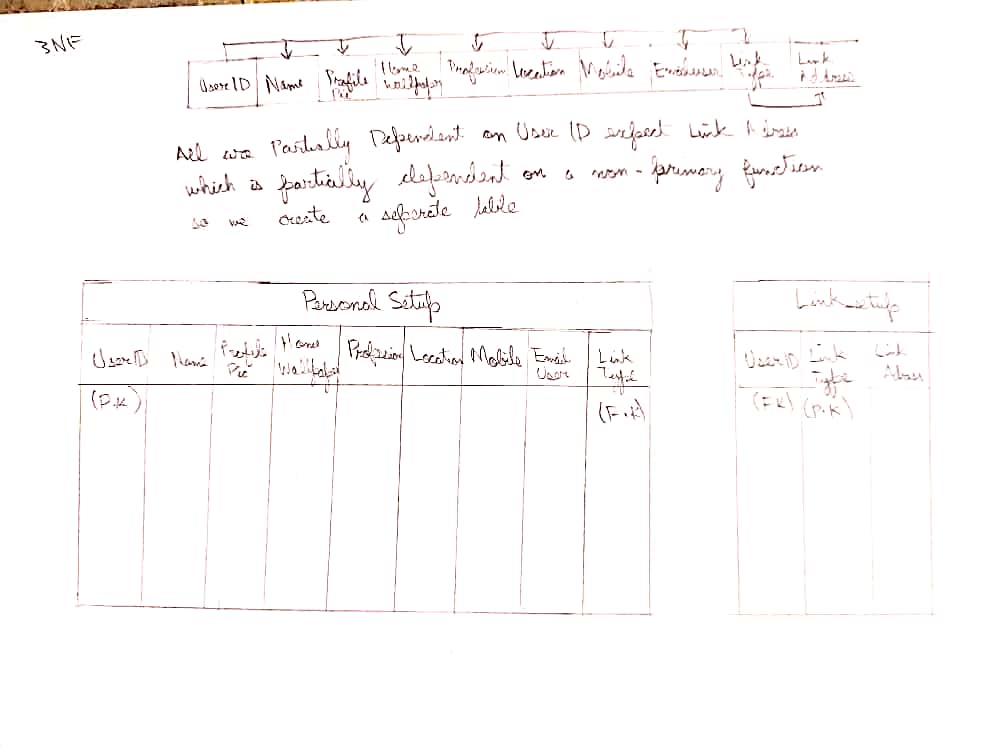 3NF
UserID Name Profile Pic Home Wallpaper Profession Location Mobile Emailuser Link Type Link Address
All are Partially Dependent on User ID expect Link Adress
which is partially dependent on a non-primary function
so we create a seperate table
Personal Setup
UserID Name Profile Pic Home Wallpaper Profession Location Mobile Email User Link Type
(P.K) (F.K)
Link setup
UserID Link Type Link Adress
(FK) (P.K)